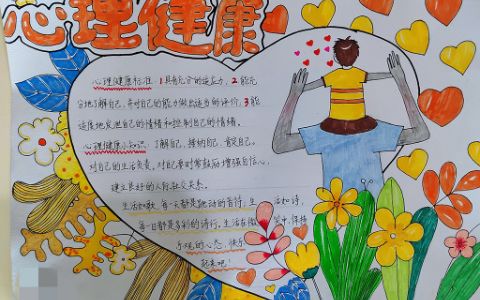 心理健康
心理健康标准:1具有充分的适应力,2能充
分地了解自己,并对自己的能力做出适当的评价,3能
适度地发泄自己的情绪和控制自己的情绪。
心理健康小知识:了解自己,接纳自己,肯定自己,
对自己的生活负责,对己要时常鼓励增强自信心,
建立良好的人际社交关系。
生活如歌,每一天都是跳动的音符;生活如诗,
每一日都是多彩的诗行。生活在微笑中,保持
乐观的心态,快乐
起来吧!